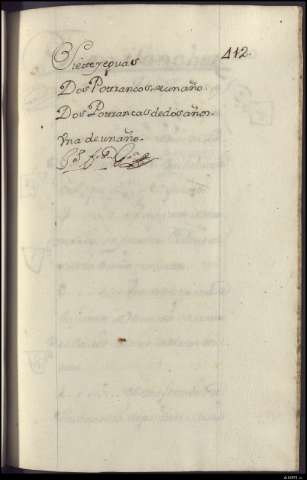 Siete reguas 412.
Dos Potrancos de un año.
Dos Potrancas de dos años
Vna de un año.